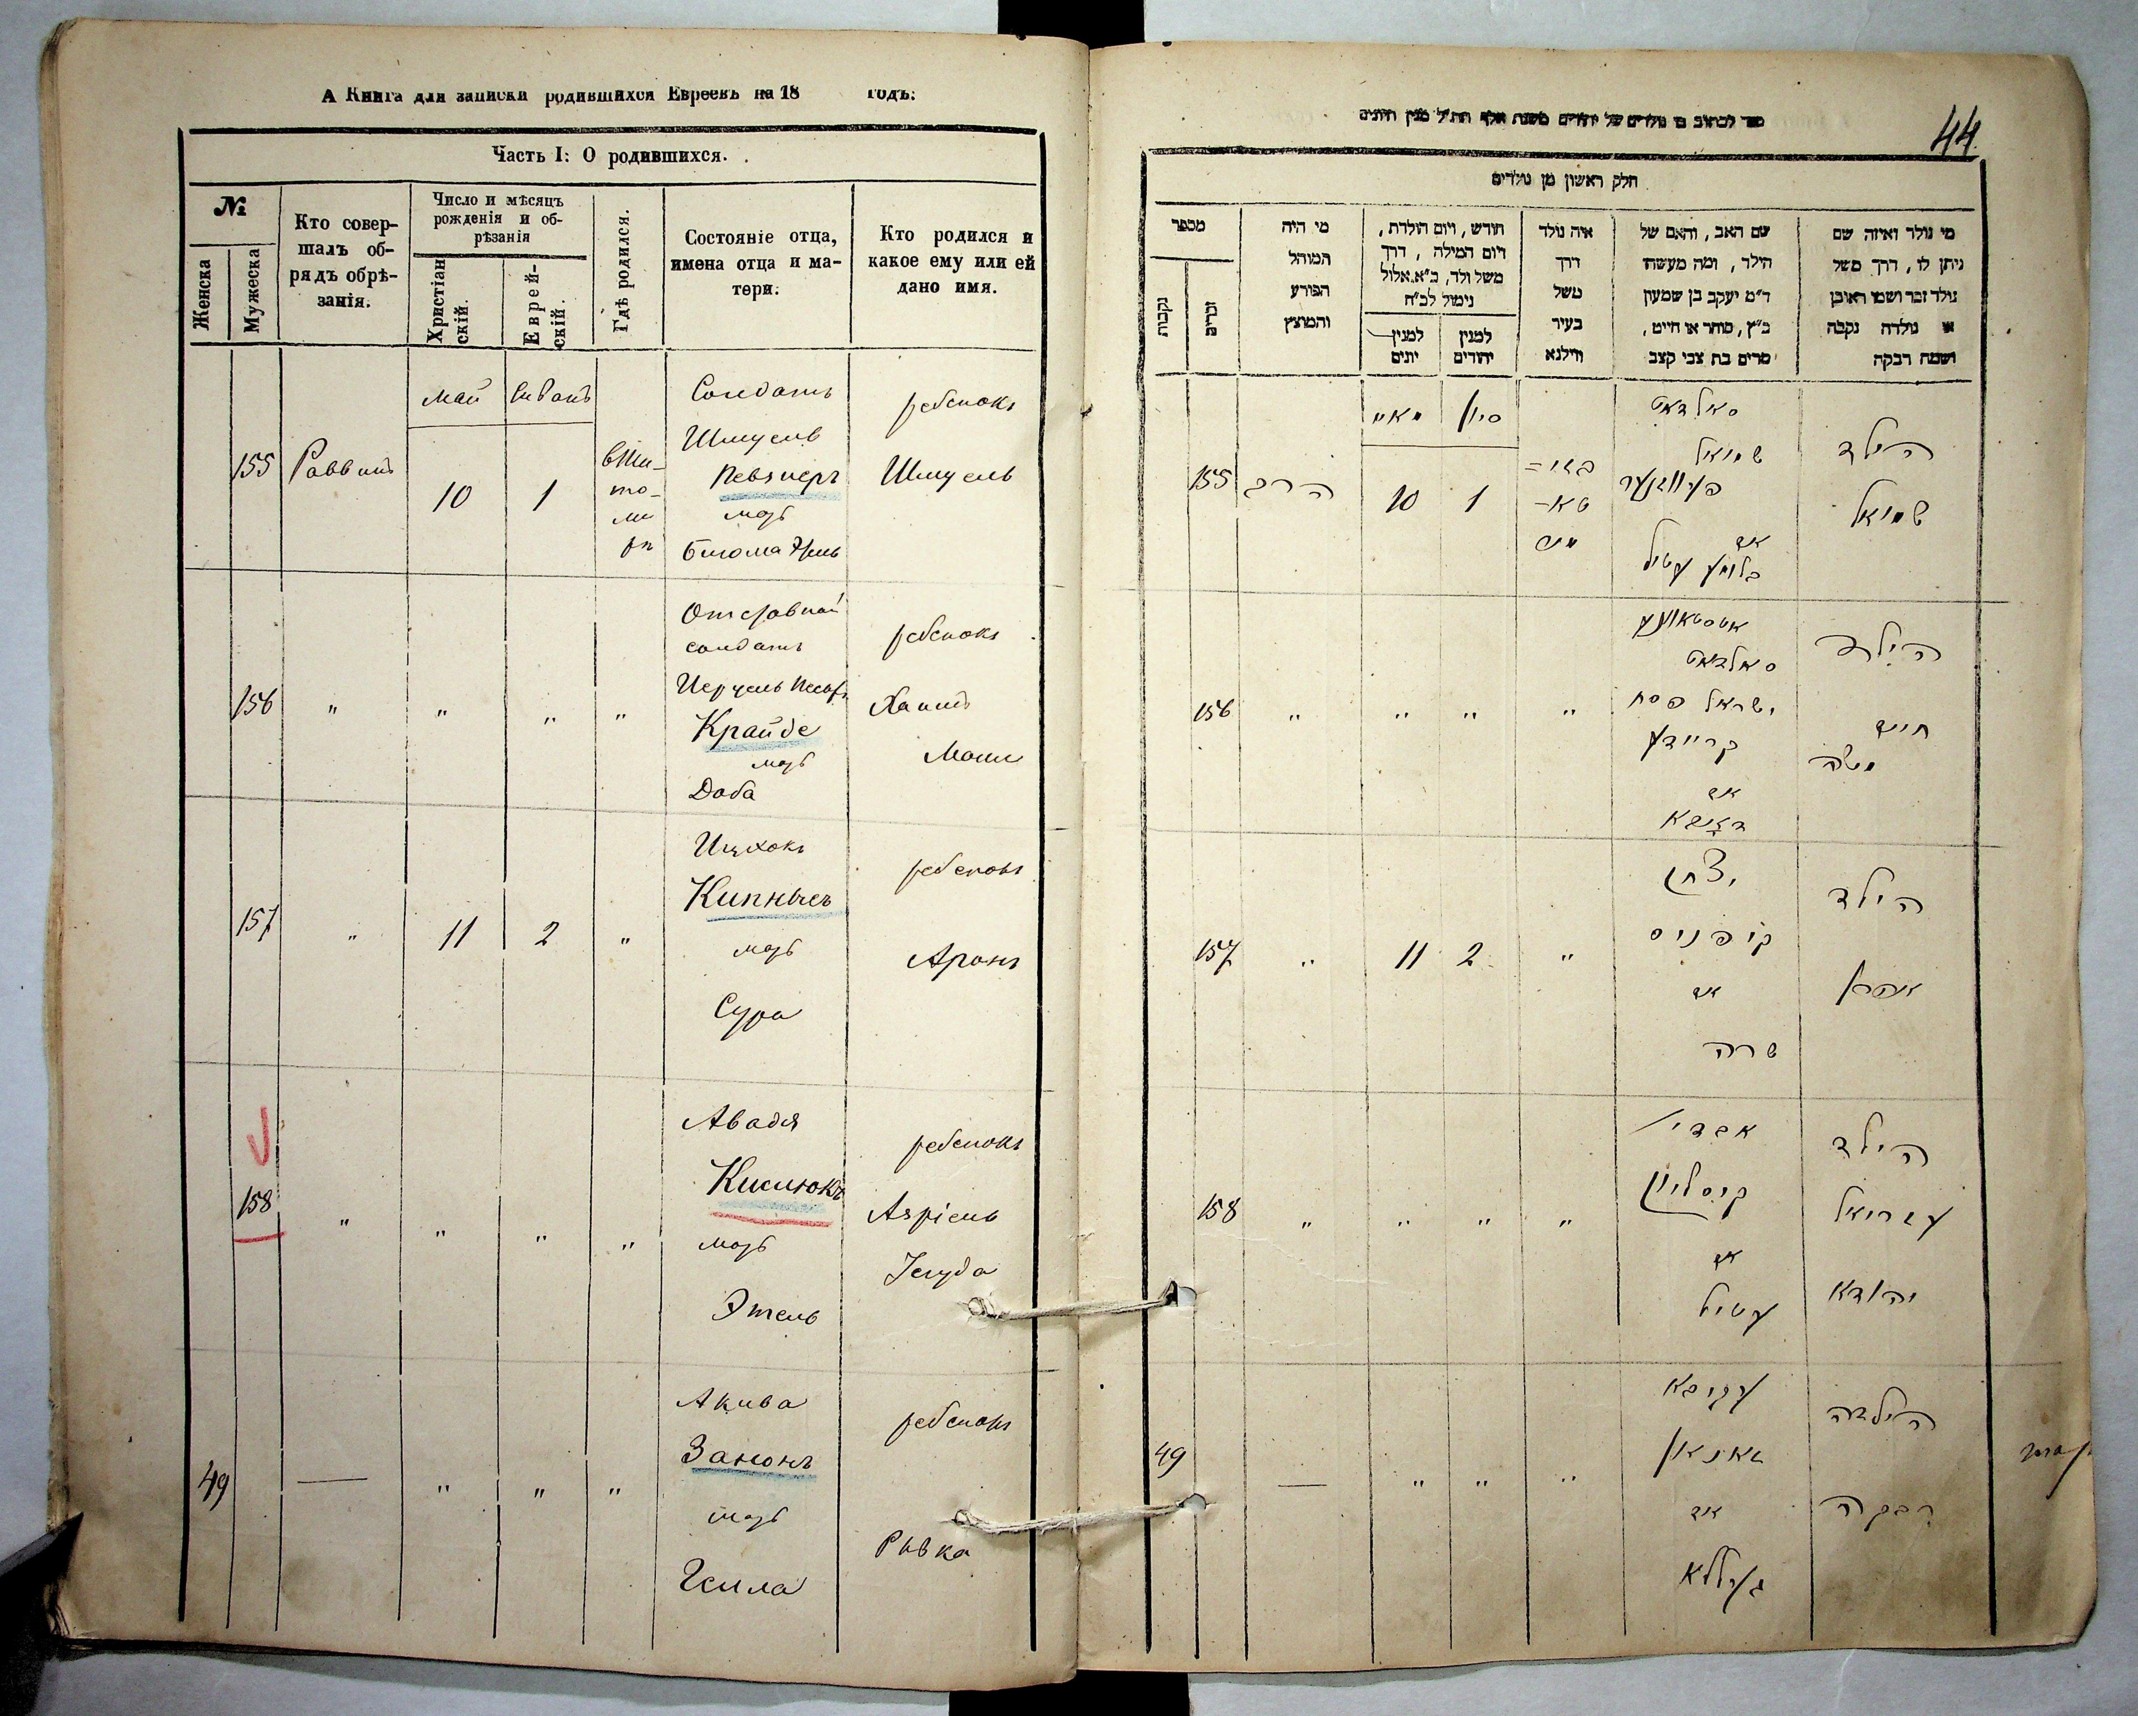 А Книга для записки родившихся Евреевъ на 18 годъ:
Часть I: О родившихся.
№
Женска
Мужеска
Кто совер-
шалъ об-
рядъ обрѣ-
занія.
Число и мѣсяцъ
рожденія и об-
рѣзанія
Христіан
скій.
Еврей-
скій.
Гдѣ родился.
Состояніе отца,
имена отца и ма-
тери.
Кто родился и
какое ему или ей
дано имя.
май
Сиванъ
155
Раввинъ
10
1
вЖи-
то-
ми
рѣ
Солдатъ
Шмуель
Певзнеръ
мать
Блюма Этель
ребенокъ
Шмуель
156
"
"
"
"
Отставной
солдатъ
Исруель Песах
Крайде
мать
Доба
ребенокъ
Хаимъ
Моше
157
"
11
2
"
Ицхокъ
Кипнысъ
мать
Сура
ребенокъ
Аронъ
158
"
"
"
"
Авадя
Кислюкъ
мать
Этель
ребенокъ
Азріель
Іегуда
49
—
"
"
"
Акива
Занонъ
мать
Гелла
ребенокъ
Ривка
44
חלק ראשון מן נולדים
מספר
נקבות
זכרים
מי היה
המוהל
הפורע
והמוצץ
חודש, ויום הולדת,
ויום המילה, דרך
משל ולד, כ"א אלול
נימול לכ"ח
למנין
יונים
למנין
יהודים
איה נולד
דרך
משל
בעיר
ווילנא
שם האב, והאם של
הילד, ומה מעשהו
ד"מ יעקב בן שמעון
כ"ץ, סוחר או חייט,
מרים בת צבי קצב
מי נולד ואיזה שם
ניתן לו, דרך משל
נולד זכר ושמו ראובן
או נולדה נקבה
ושמה רבקה
מאי
סיון
155
הרב
10
1
זשי=
טא-
מיר
סאלדאט
שמואל
פעווזנער
אם
בלומע עטיל
הילד
שמואל
156
"
"
"
"
אטסטאוונע
סאלדאט
ישראל פסח
קריידע
אם
דאבא
הילד
חיים
משה
157
"
11
2
"
יצחק
קיפניס
אם
שרה
הילד
אהרן
158
"
"
"
"
קיסליוק
אם
עטיל
הילד
עזריאל
יהודא
49
—
"
"
"
עקיבא
זאנאן
אם
געללא
הילדה
רבקה